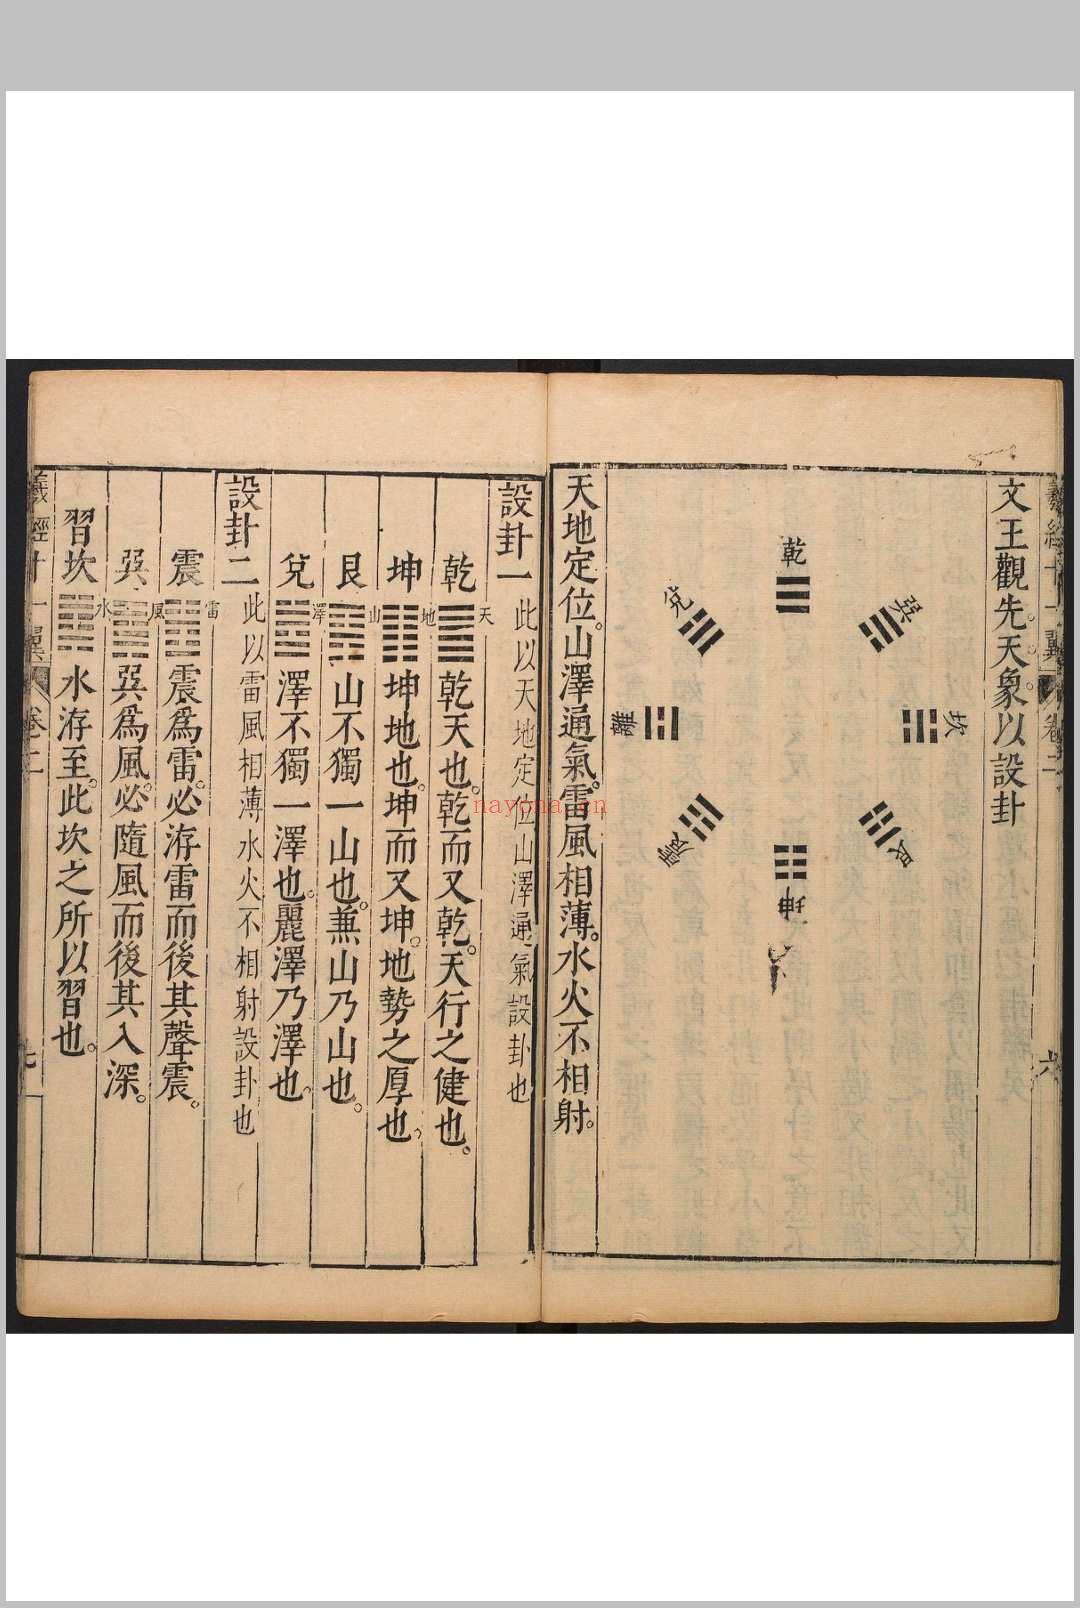 文王觀先天象以設卦
乾
兌
巽
離
坎
震
艮
坤
天地定位。山澤通氣。雷風相薄。水火不相射。
六
設卦一 此以天地定位山澤通氣設卦也
乾 天 乾天也。乾而又乾。天行之健也。
坤 地 坤地也。坤而又坤。地勢之厚也。
艮 山 山不獨一山也。兼山乃山也。
兌 澤 澤不獨一澤也。麗澤乃澤也。
設卦二 此以雷風相薄水火不相射設卦也
震 雷 震爲雷。必洊雷而後其聲震。
巽 風 巽爲風。必隨風而後其入深。
習坎 水 水洊至。此坎之所以習也。
卷二
七
nayona.cn